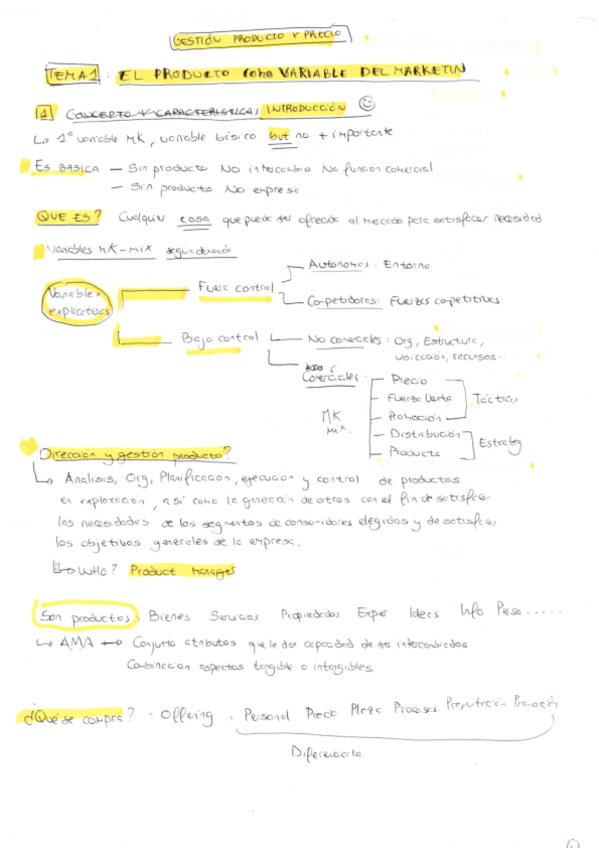 GESTIÓN PRODUCTO Y PRECIO
TEMA 1: EL PRODUCTO como VARIABLE DEL MARKETIN
1 CONCEPTO Y CARACTERISTICAS INTRODUCCIÓN
↳ 1ª variable MK, variable básica but no + importante
ES BASICA — Sin producto No intercambio No funcion comercial
— Sin producto No empresa
QUE ES? Cualquier cosa que puede ser ofrecida al mercado para satisfacer necesidad
Variables MK-MIX
Variables explicativas
Fuera control
Autonomas: Entorno
Competidores: Fuerzas competitivas
Bajo control
No comerciales: Org, Estructura,
ubicación, recursos....
Comerciales:
MK mix.
— Precio
— Fuerza Venta
— Promoción
Táctica
— Distribución
— Producto
Estrateg
Dirección y gestión producto?
↳ Analisis, Org, Planificación, ejecución y control de productos
en explotación, así como la generación de otros con el fin de satisfacer
las necesidades de los segmentos de consumidores elegidos y de satisfacer
los objetivos generales de la empresa.
↳ WHo? Product Manager
Son productos: Bienes Servicios Propiedades Exper Ideas Info Perso.....
↳ AMA → Conjunto atributos que le dan capacidad de ser intercambiados
Combinación aspectos tangible o intangibles.
¿Qué se compra? · Offering : Personal Precio Plaza Procesos Presentación Promoción
Diferenciarlo